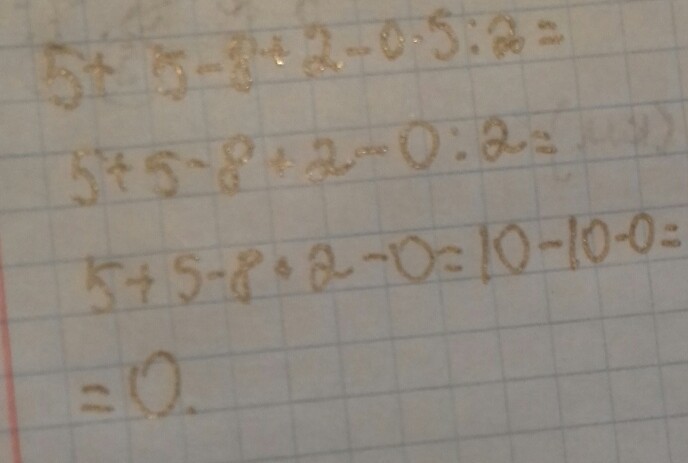 5+ 5-8+2-0·5:2=
5+5-8+2-0:2=
5+5-8+2-0=10-10-0=
=0.